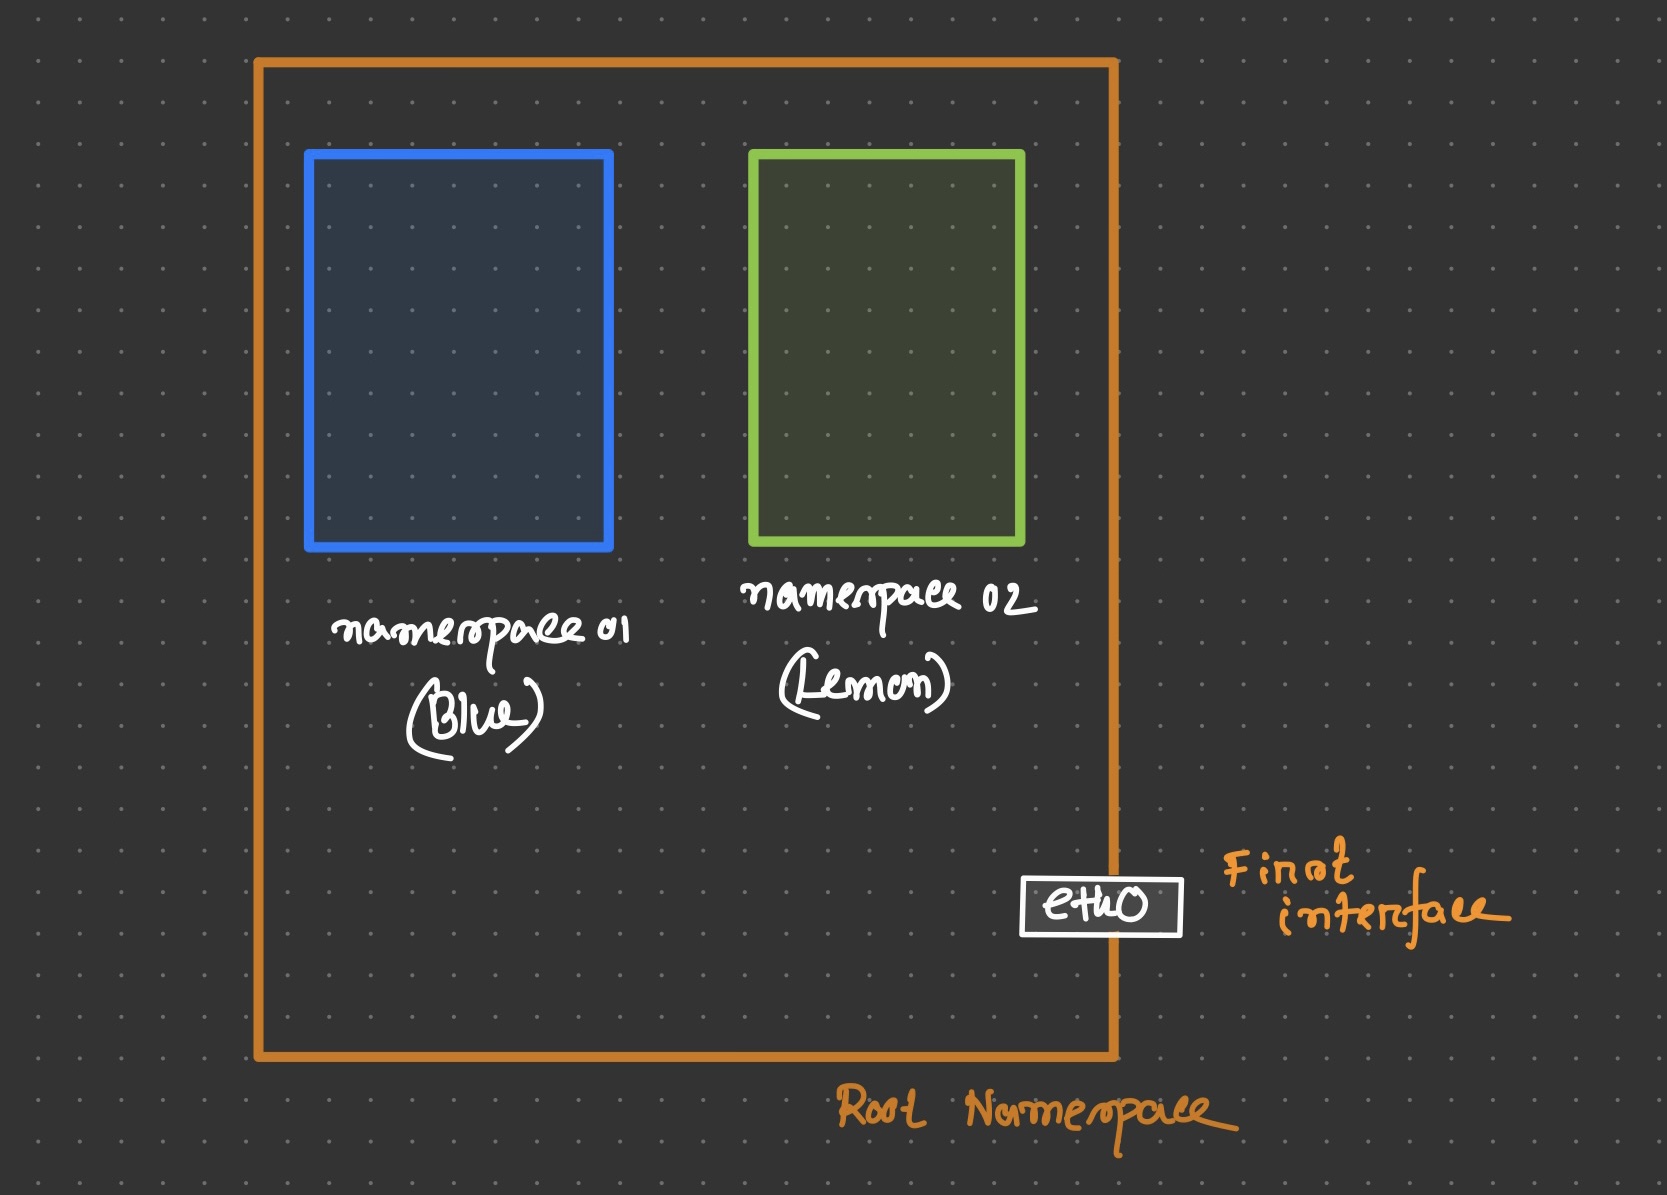 namespace 01
(Blue)
namespace 02
(Lemon)
eth0
First
interface
Root Namespace